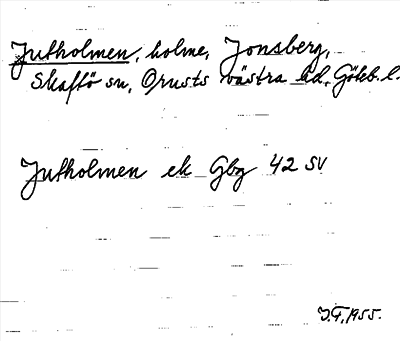 Jutholmen, holme, Jonsberg,
Skaftö sn, Orusts västra hd, Göteb. l.
Jutholmen ek Gbg 42 SV
J.F. 1955.